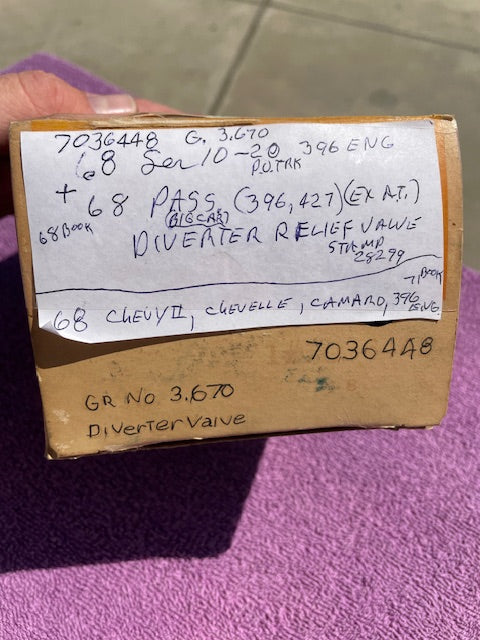 7036448 G. 3.670
68 Ser 10-20 396 ENG
P.O.TRK
+ 68 PASS. (396, 427) (EX A.T.)
(BIG CAR)
68 BOOK
DIVERTER RELIEF VALVE
STAMP
28299
71 BOOK
68 CHEVY II, CHEVELLE, CAMARO, 396 ENG
7036448
GR NO 3.670
DIVerTer Valve